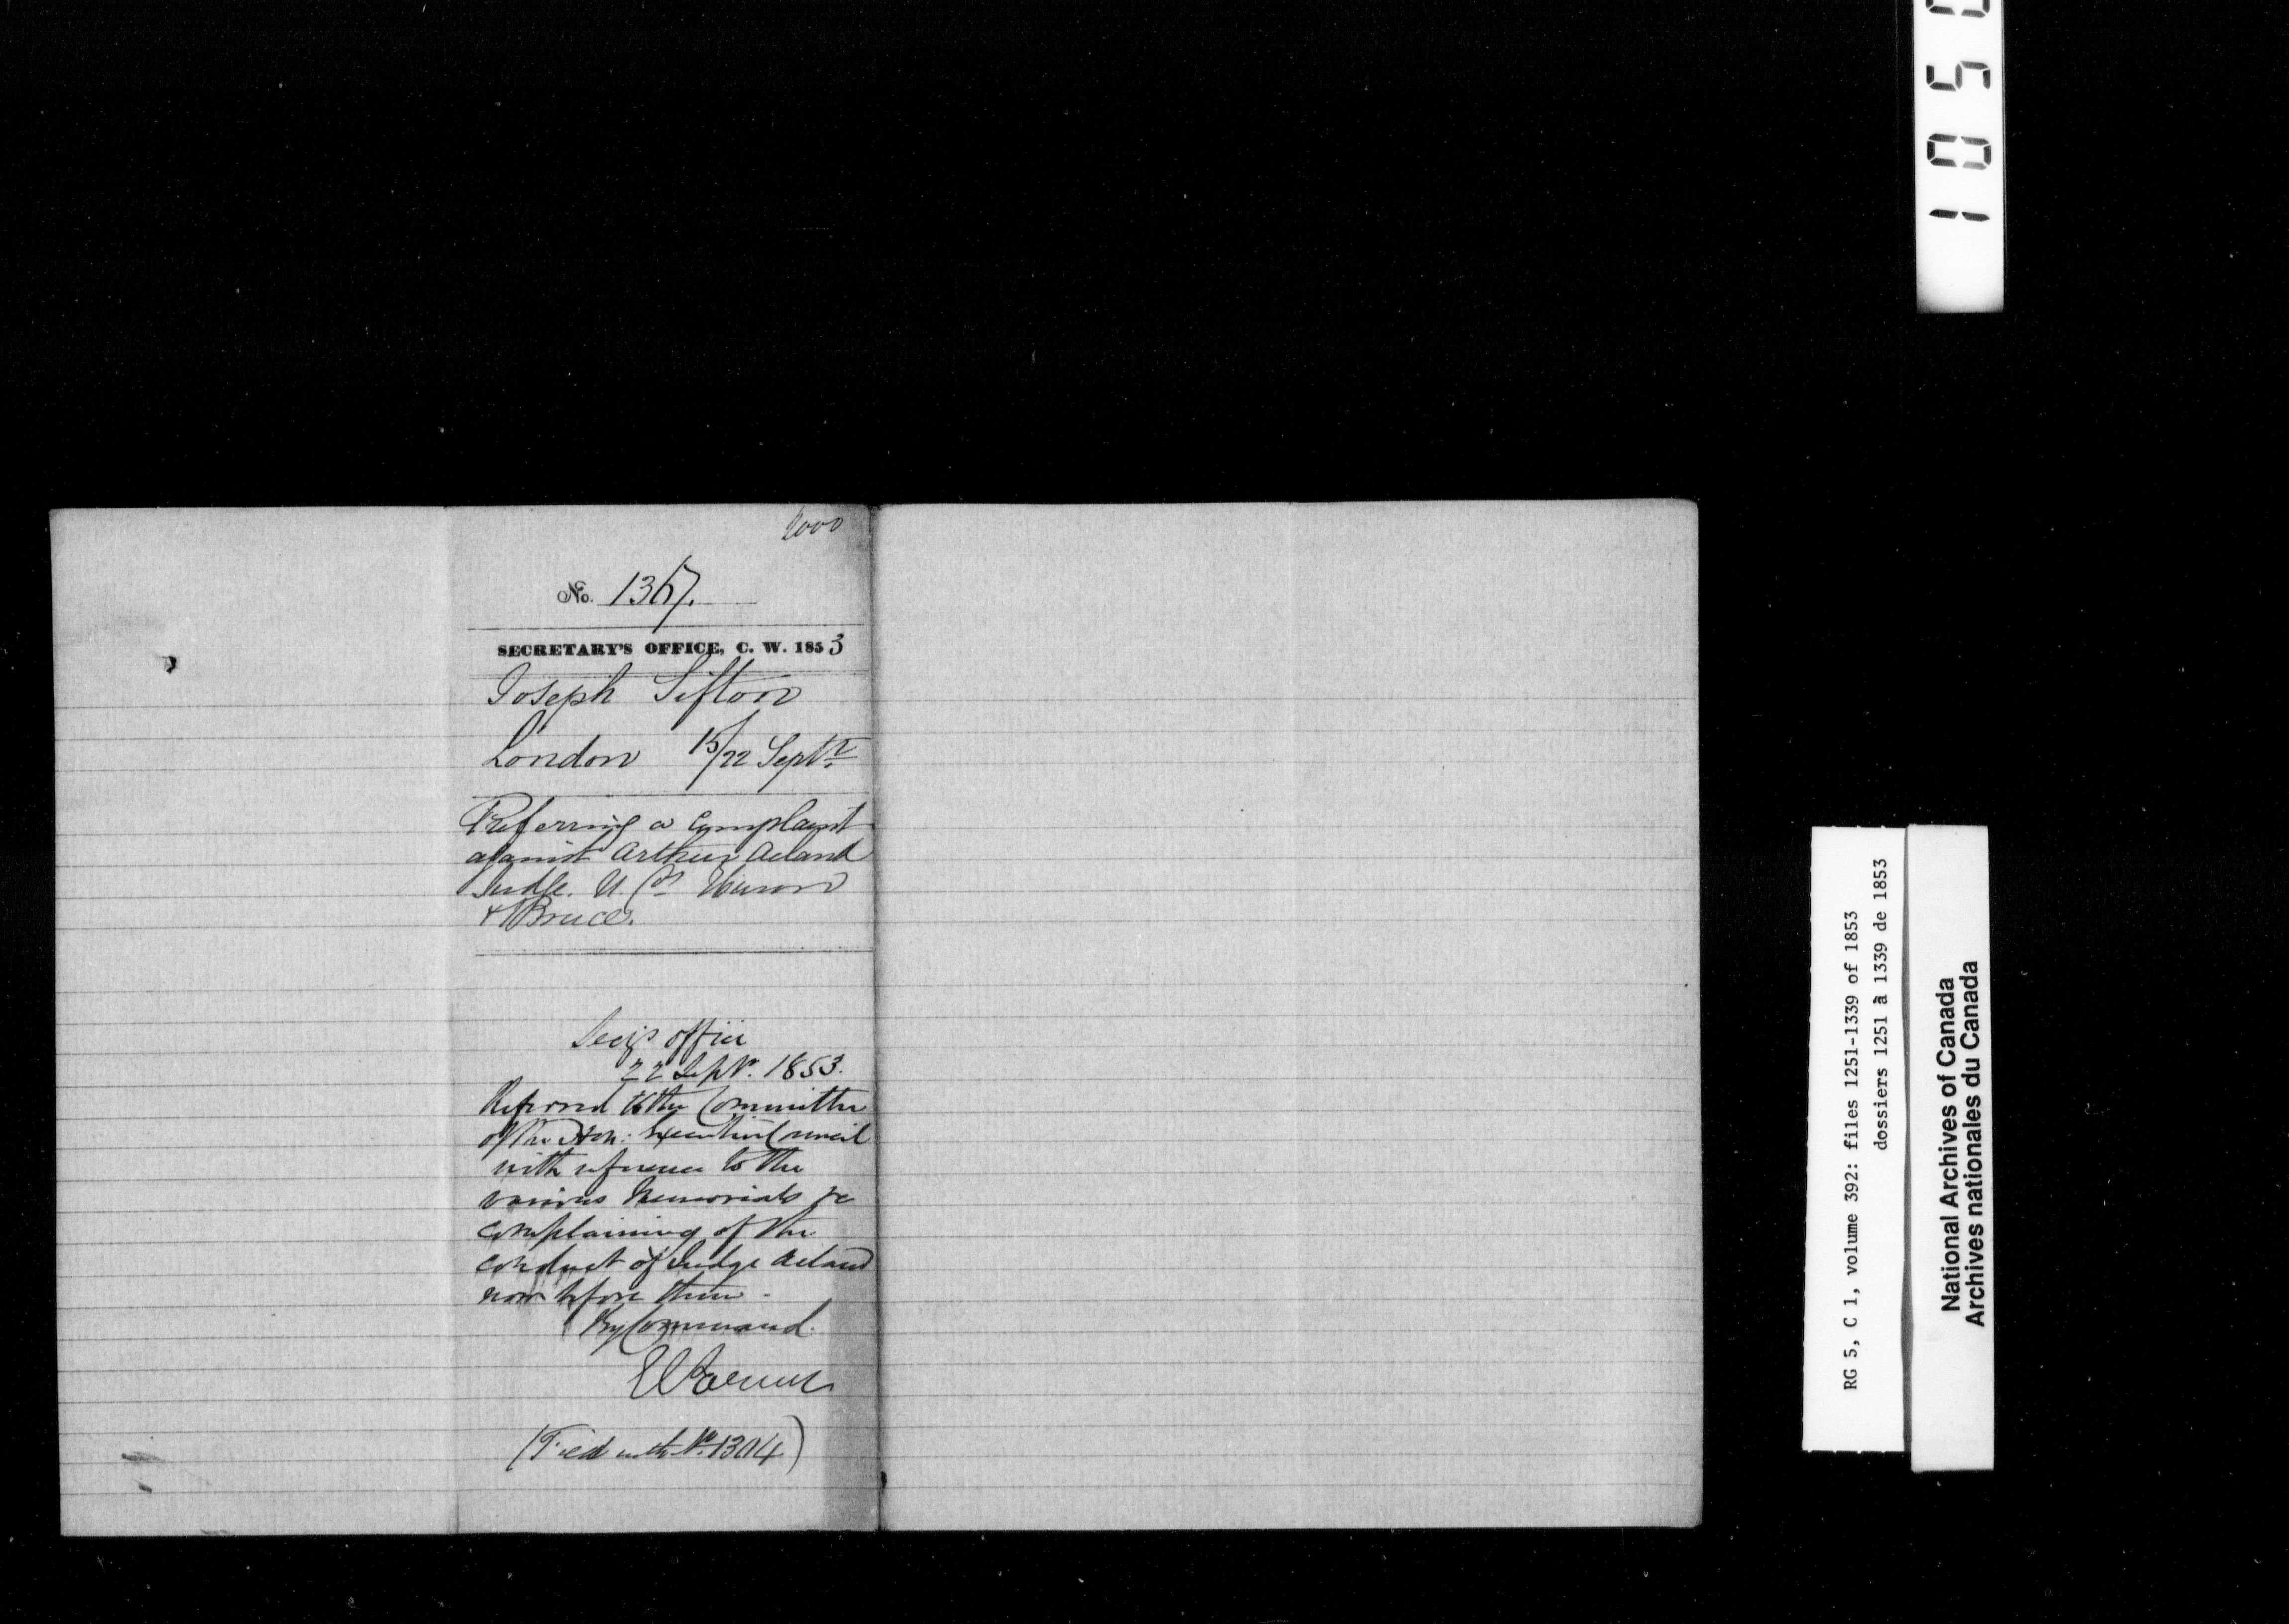 2000
No. 1367.
SECRETARY'S OFFICE, C. W. 1853
Joseph Sifton
London 15/22 Septr
Preferring a Complaint
against Arthur Acland
Judge. U. Cos Huron
& Bruce.
Secy's office
22 Septr. 1853.
Referred to the Committee
of the Hon: Executive Council
with reference to the
various Memorials &c
complaining of the
conduct of Judge Acland
now before them -
By Command.
(Tied with No. 1304)
1 0 5 0
RG 5, C 1, volume 392: files 1251-1339 of 1853
dossiers 1251 à 1339 de 1853
National Archives of Canada
Archives nationales du Canada